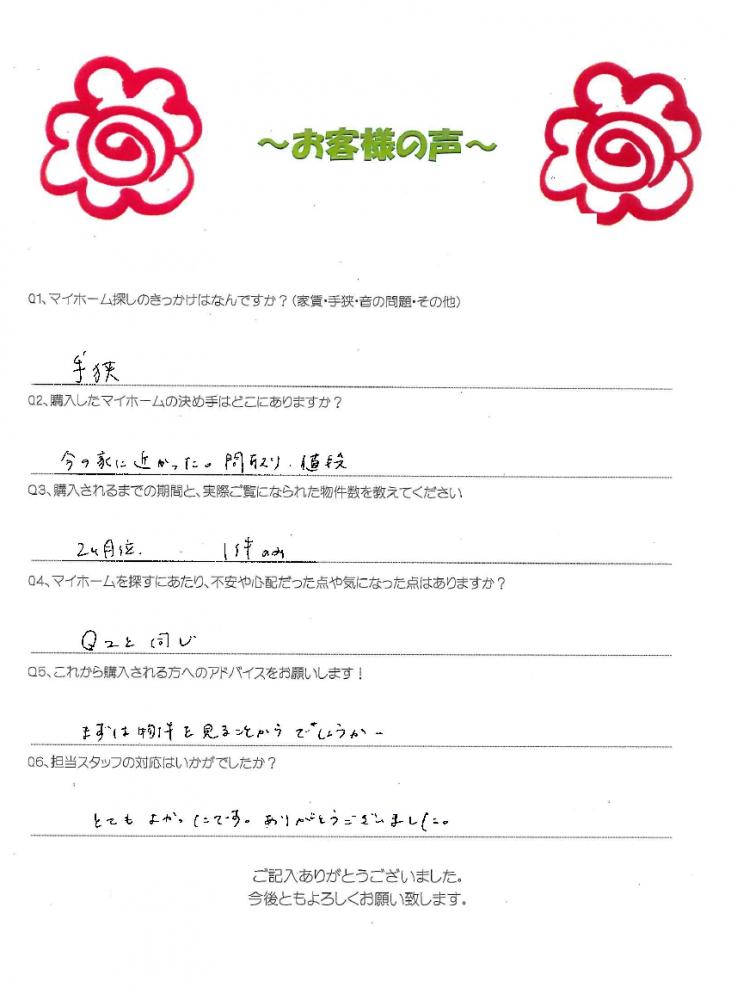 ～お客様の声～
Q1、マイホーム探しのきっかけはなんですか？（家賃・手狭・音の問題・その他）
手狭
Q2、購入したマイホームの決め手はどこにありますか？
今の家に近かった。間取り、値段
Q3、購入されるまでの期間と、実際ご覧になられた物件数を教えてください
2ヶ月位. 1件のみ
Q4、マイホームを探すにあたり、不安や心配だった点や気になった点はありますか？
Q2と同じ
Q5、これから購入される方へのアドバイスをお願いします！
まずは物件を見ることからでしょうかー
Q6、担当スタッフの対応はいかがでしたか？
とてもよかったです。ありがとうございました。
ご記入ありがとうございました。
今後ともよろしくお願い致します。